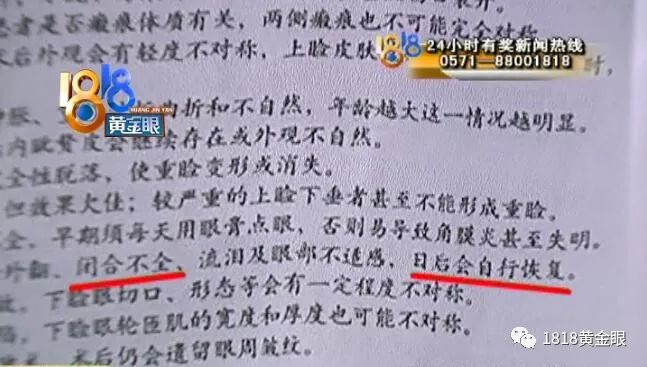 患者是否瘢痕体质有关,两侧瘢痕也不可能完全对称。
术后外观会有轻度不对称,上睑皮肤
时,
24小时有奖新闻热线
0571—88001818
1818
HUANG JIN YAN
黄金眼
折和不自然,年龄越大这一情况越明显。
内眦赘皮会继续存在或外观不自然。
全性脱落,使重睑变形或消失。
但效果欠佳;较严重的上睑下垂者甚至不能形成重睑。
全,早期须每天用眼膏点眼,否则易导致角膜炎甚至失明。
外翻、闭合不全、流泪及眼部不适感,日后会自行恢复。
下睑眼切口、形态等会有一定程度不对称。
下睑眼轮匝肌的宽度和厚度也可能不对称。
术后仍会遗留眼周皱纹。
1818黄金眼